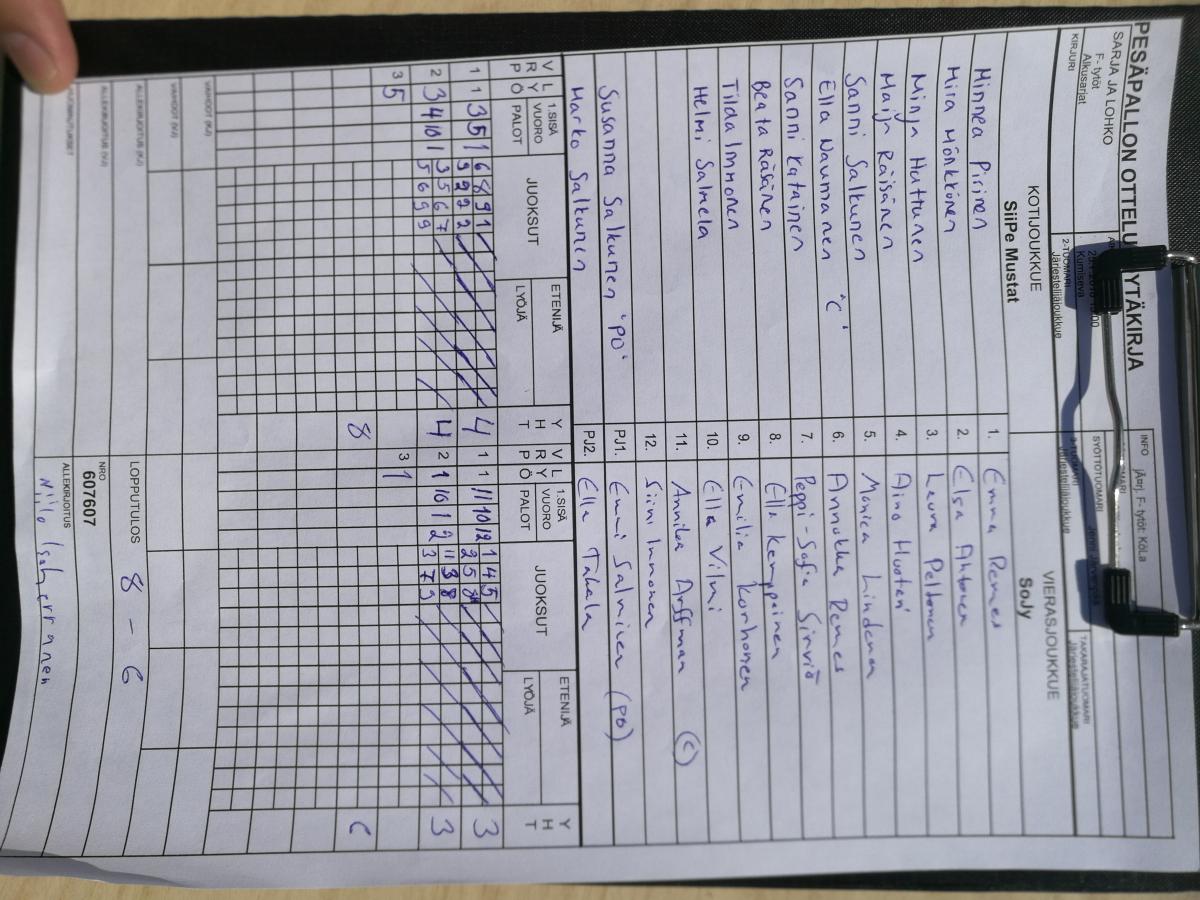 PESÄPALLON OTTELUPÖYTÄKIRJA
INFO Järj. F- tytöt: KöLa
SARJA JA LOHKO
F- tytöt
Alkusarjat
SYÖTTÖTUOMARI
TAKARAJATUOMARI
Järjestelijäjoukkue
KIRJURI
Kumiseva
2-TUOMARI
Järjestelijäjoukkue
3-TUOMARI
Järjestelijäjoukkue
KOTIJOUKKUE VIERASJOUKKUE
SiiPe Mustat SoJy
Minnea Pirinen 1. Emma Remes
Mira Mönkkönen 2. Elsa Ahtonen
Minja Huttunen 3. Laura Peltonen
Maija Räisänen 4. Aino Huotari
Sanni Salkunen 5. Monica Lindeman
Ella Naumanen "C" 6. Annukka Remes
Sanni Katainen 7. Peppi-Sofia Sirviö
Beata Räsänen 8. Ella Kemppainen
Tilda Immonen 9. Emilia Korhonen
Helmi Salmela 10. Ella Vilmi
11. Annika Arffman (C)
12. Siini Immonen
Susanna Salkunen "PO" PJ1. Emmi Salminen (PO)
Marko Salkunen PJ2. Ella Takala
V R P L Y Ö 1.SISÄ VUORO PALOT JUOKSUT ETENIJÄ LYÖJÄ Y H T V R P L Y Ö 1.SISÄ VUORO PALOT JUOKSUT ETENIJÄ LYÖJÄ Y H T
1 1 3 5 1 6 8 9 1 4 1 1 11 10 12 1 4 5 3
9 2 2 2 2 5 8
2 3 4 10 1 3 5 6 7 4 2 1 10 1 2 11 3 8 3
5 6 9 9 3 7 9
3 5 3 1
8 6
VAIHDOT (KJ)
VAIHDOT (VJ)
ALLEKIRJOITUS (KJ) LOPPUTULOS 8 - 6
ALLEKIRJOITUS (VJ) NRO
607607
ALLEKIRJOITUS
Niilo